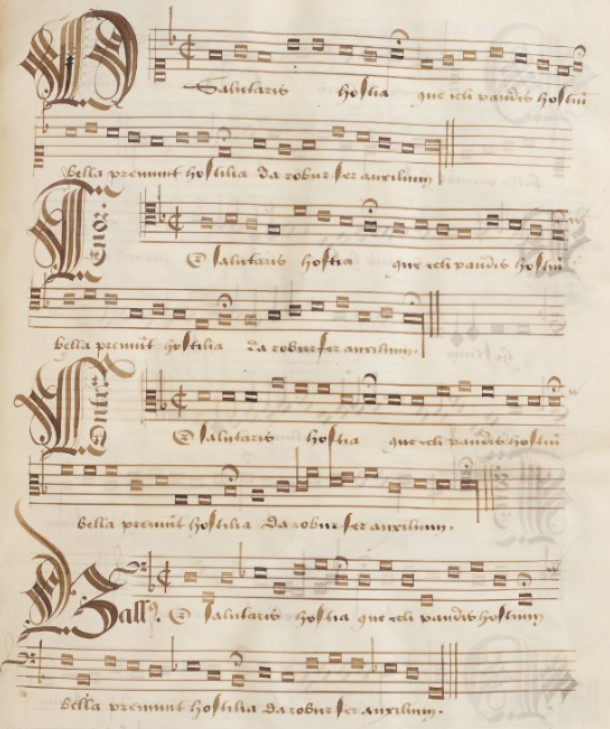 O Salutaris hostia que celi pandis hostiu̅
bella premunt hostilia da robur fer auxilium
Tenor.
O salutaris hostia que celi pandis hostiu̅
bella premu̅t hostilia da robur fer auxilium.
Contra
O salutaris hostia que celi pandis hostiu̅
bella premu̅t hostilia da robur fer auxilium.
Bassꝰ. O salutaris hostia que celi pandis hostium
bella premunt hostilia da robur fer auxilium.